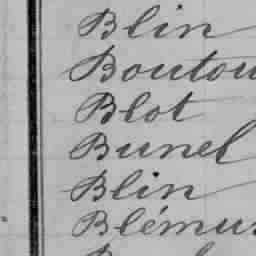 Blin
Boutou
Blot
Bunel
Blin
Blému